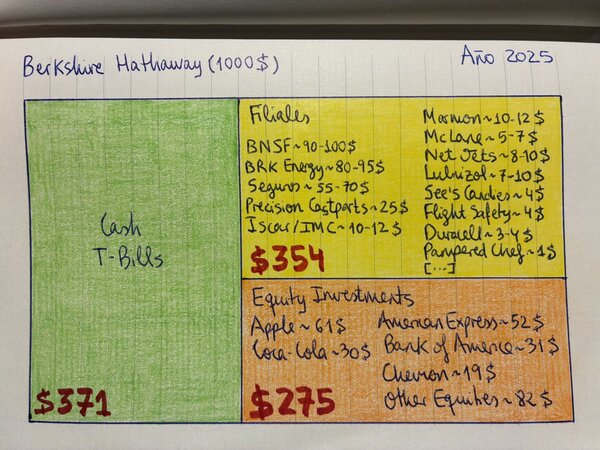 Berkshire Hathaway (1000$)
Año 2025
Cash
T-Bills
$371
Filiales
BNSF ~ 90-100$
BRK Energy ~ 80-95$
Seguros ~ 55-70$
Precision Castparts ~ 25$
Iscar/IMC ~ 10-12$
$354
Marmon ~ 10-12$
McLane ~ 5-7$
Net Jets ~ 8-10$
Lubrizol ~ 7-10$
See's Candies ~ 4$
Flight Safety ~ 4$
Duracell ~ 3-4$
Pampered Chef ~ 1$
[...]
Equity Investments
Apple ~ 61$
Coca-Cola ~ 30$
$275
American Express ~ 52$
Bank of America ~ 31$
Chevron ~ 19$
Other Equities ~ 82$